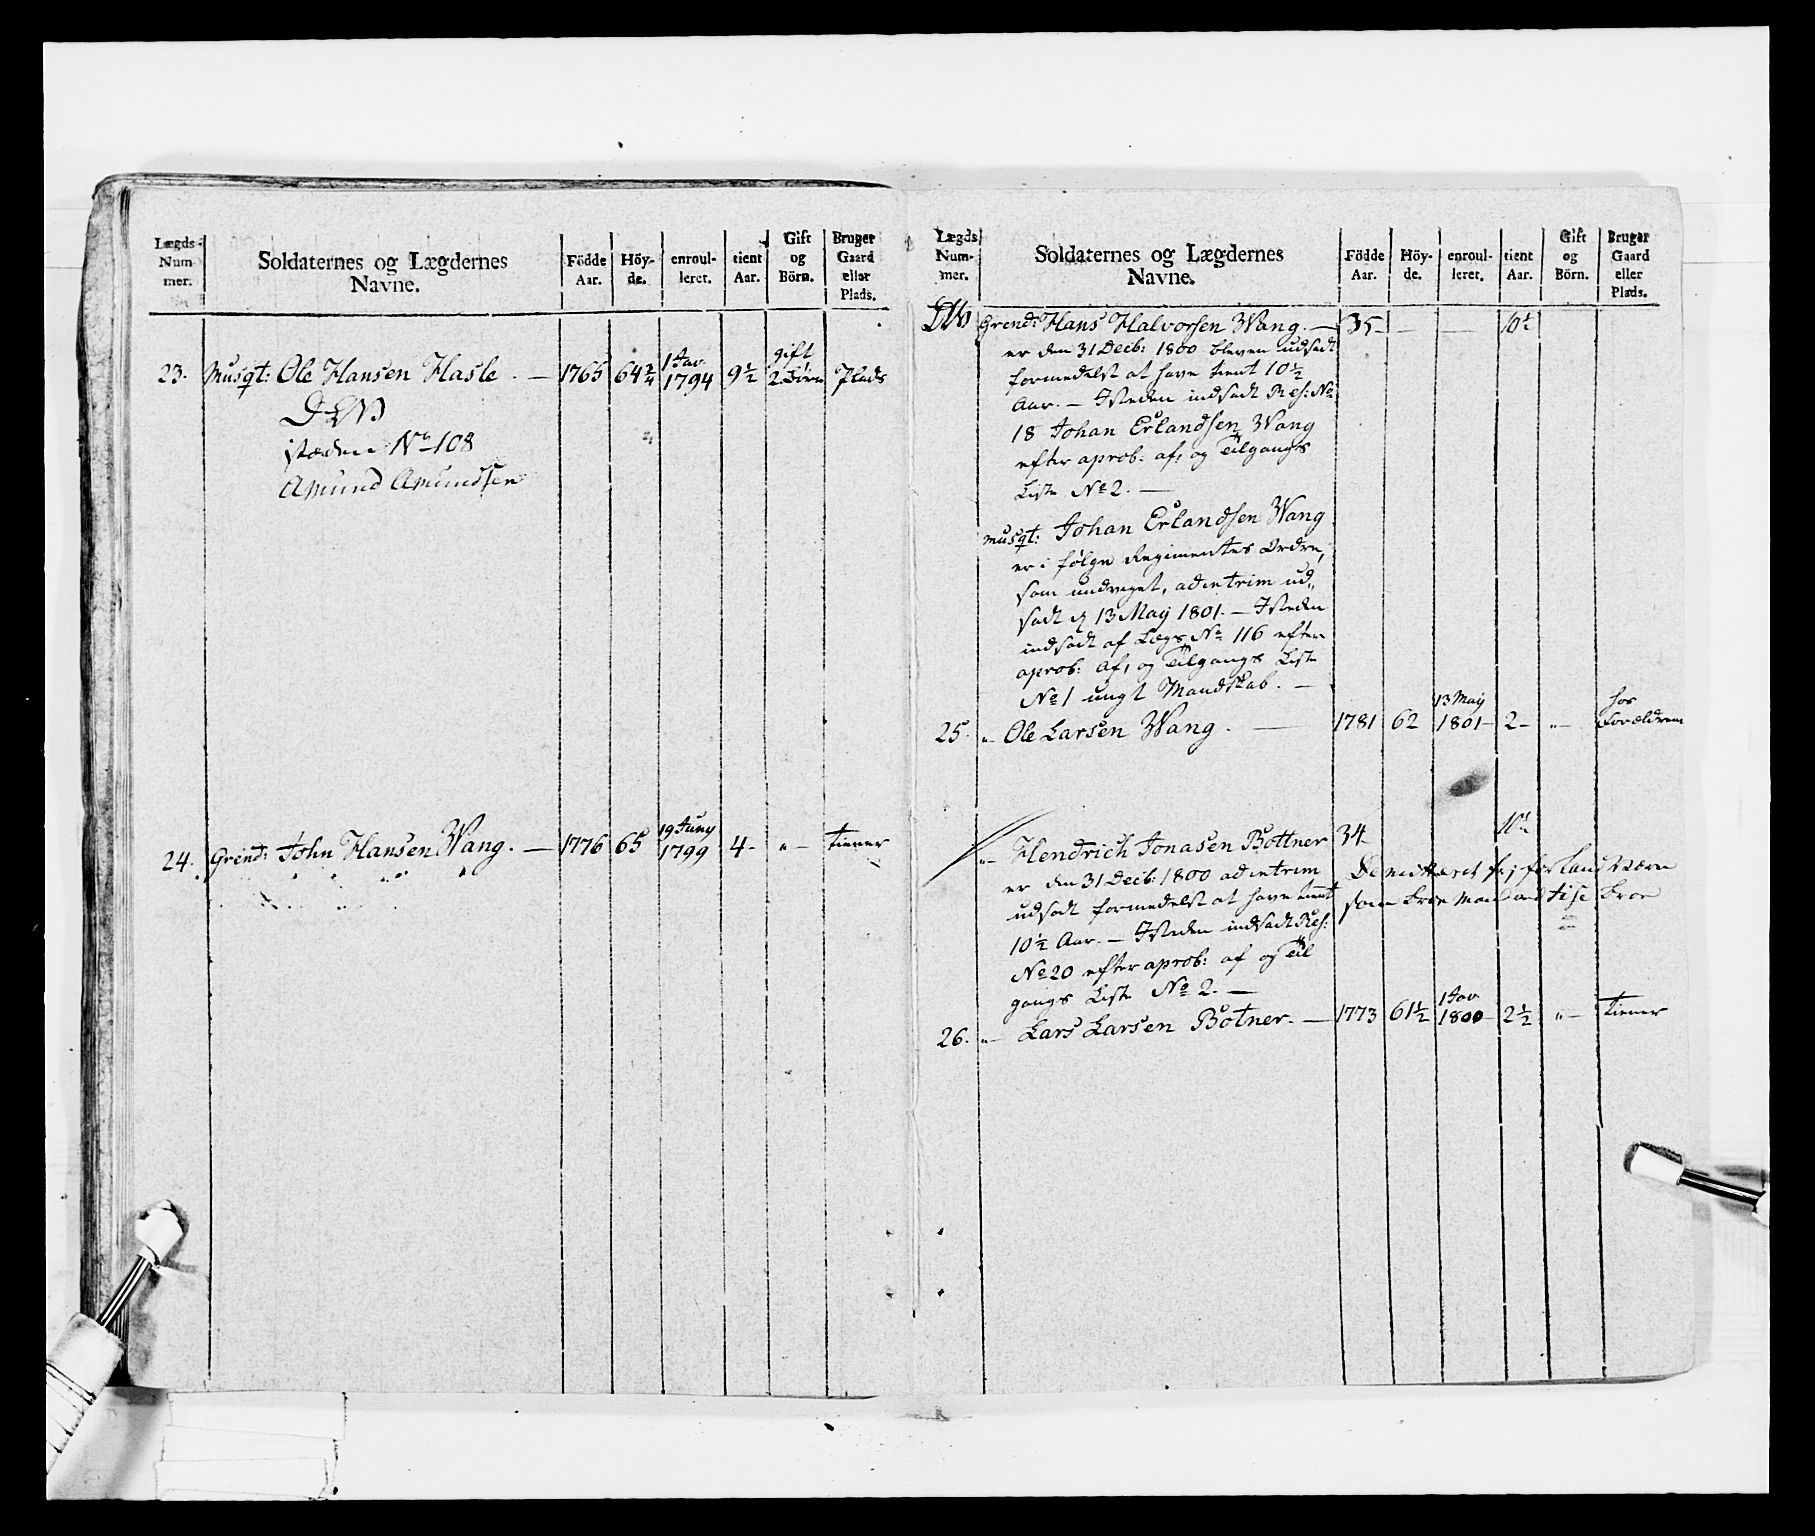 Lægds-
Num-
mer.
Soldaternes og Lægdernes
Navne.
Födde
Aar.
Höy-
de.
enroul-
leret.
tient
Aar.
Gift
og
Börn.
Bruger
Gaard
eller
Plads.
23. Musqt: Ole Hansen Hasle. — 1765 64 2/4 1 Jav 1794 9½ gift 2 Børn Plads
istæden No 108
Amund Amundsen
24. Grend: John Hansen Wang. — 1776 65 19 Juny 1799 4- „- tiener
Lægds
Num-
mer.
Soldaternes og Lægdernes
Navne.
Födde
Aar.
Höy-
de.
enroul-
leret.
tient
Aar.
Gift
og
Börn.
Bruger
Gaard
eller
Plads.
Grend: Hans Halvorsen Wang. — 35- — — 10½
er den 31 Decb: 1800 bleven udsadt
formedelst at have tient 10½
Aar. — Isteden indsadt Res: No
18 Johan Erlandsen Wang
efter aprob: af, og Tilgangs
Liste No 2. —
Musqt: Johan Erlandsen Wang
er i følge Regimentes Ordre,
som undveget, ad intrim ud„
sadt d 13 May 1801. — Isteden
indsadt af Lægs No 116 efter
aprob: af, og Tilgangs Liste
No 1 ungt Mandskab. —
25. „- Ole Larsen Wang. — 1781 62 13 May 1801- 2- „- hos Forældrene
„- Hendrich Jonasen Bottner 34- 10½
er den 31 Decb: 1800 ad intrim
udsadt formedelst at have tient
10½ Aar. — Isteden indsadt Res:
No 20 efter aprob: af og Til
gangs Liste No 2. —
Demitteret for Landværn
som
26. „- Lars Larsen Botner. — 1773 61½ 1 Jav 1800- 2½ „- tiener